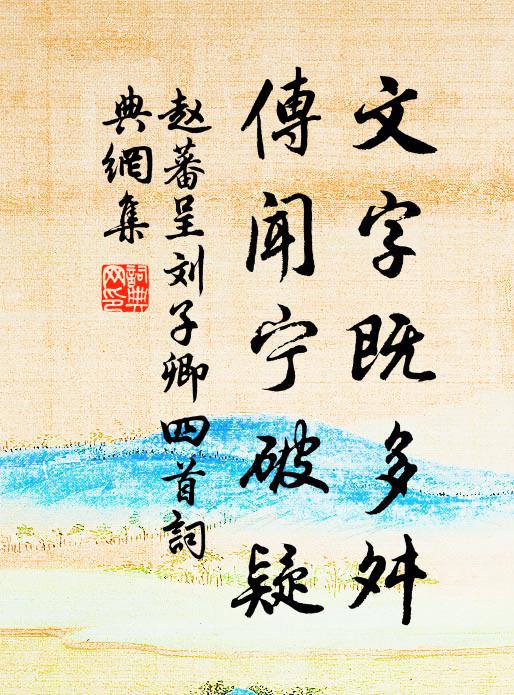 文字既多舛
傳闻宁破疑
赵蕃呈刘子卿四首詞
典網集
詞典网印